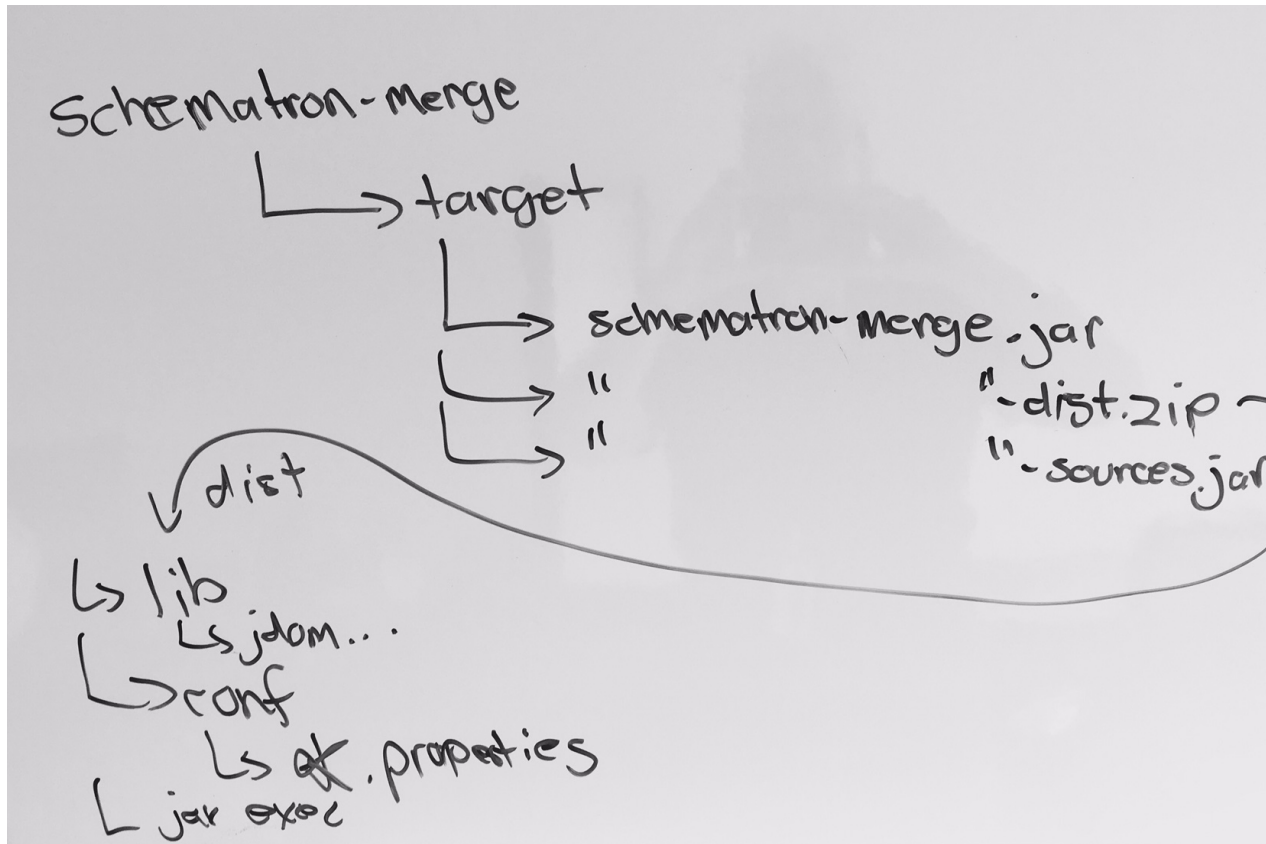 schematron-merge
target
schematron-merge.jar
" "-dist.zip
" "-sources.jar
dist
lib
jdom...
conf
.properties
jar exec